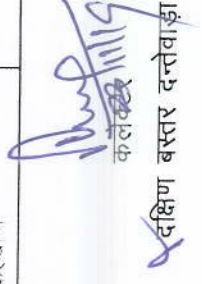 कलेक्टर
दक्षिण बस्तर दन्तेवाड़ा